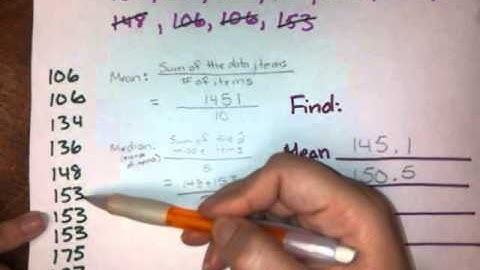 148, 106, 106, 153
106
106
134
136
148
153
153
153
175
Mean: Sum of the data items
# of items
= 1451
10
Median: Sum of the 2
middle items
=
Find:
Mean 145.1
150.5